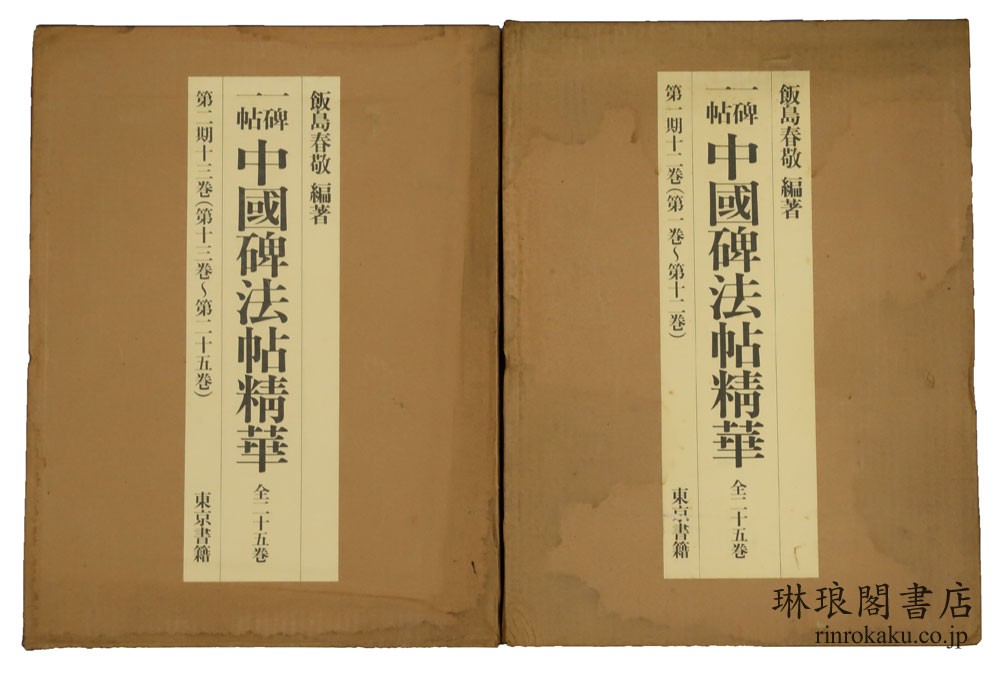 飯島春敬 編著
一碑一帖 中國碑法帖精華 全二十五巻
第一期十二巻（第一巻〜第十二巻）
東京書籍
飯島春敬 編著
一碑一帖 中國碑法帖精華 全二十五巻
第二期十三巻（第十三巻〜第二十五巻）
東京書籍
琳琅閣書店
rinrokaku.co.jp